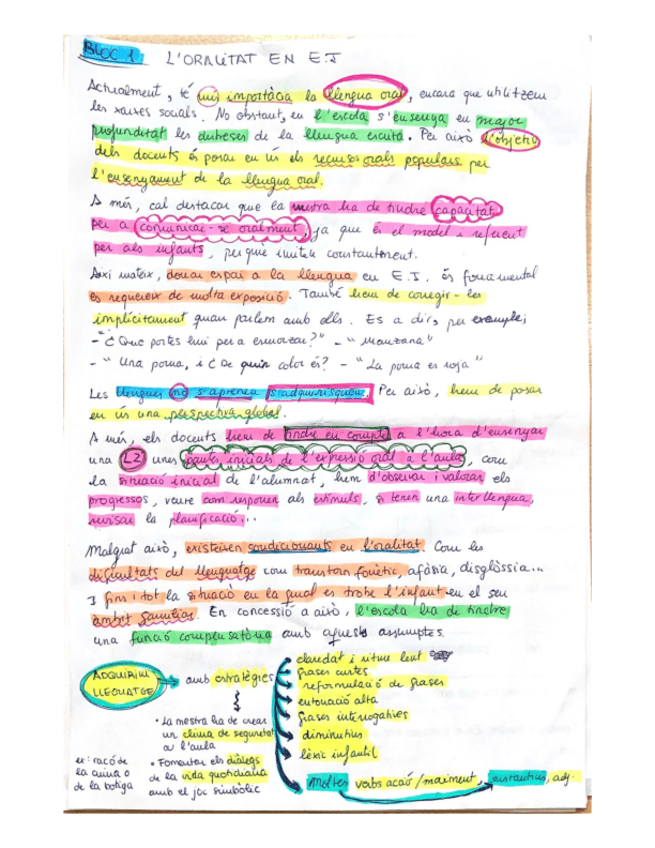 BLOC 1 L'ORALITAT EN E.I
Actualment, té més importàcia la llengua oral, encara que utilitzem
les xarxes socials. No obstant, en l'escola s'ensenya en major
profunditat les destreses de la llengua escrita. Per això l'objectiu
dels docents és posar en ús els recursos orals populars per
l'ensenyament de la llengua oral.
A més, cal destacar que la mestra ha de tindre capacitat
per a comunicar-se oralment, ja que és el model i referent
per als infants, perquè imiten constantment.
Així mateix, donar espai a la llengua en E.I. és fonamental
es requereix de molta exposició. També hem de corregir-les
implícitament quan parlem amb ells. Es a dir, per exemple;
-"¿Que portes hui per a esmorzar?" -"Manzana"
-"Una poma, i ¿De quin color és? -"La poma es roja"
Les llengües no s'aprenen, s'adquirisquen. Per això, hem de posar
en ús una perspectiva global.
A més, els docents hem de tindre en compte a l'hora d'ensenyar
una L2 unes pautes inicials de l'expressió oral a l'aula, com
la situació inicial de l'alumnat, hem d'observar i valorar els
progressos, veure com responen als estímuls, si tenen una interllengua,
revisar la planificació...
Malgrat això, existeixen condicionants en l'oralitat. Com les
dificultats del llenguatge com transtorn fonètic, afàsia, disglòssia...
I fins i tot la situació en la qual es trobe l'infant en el seu
àmbit familiar. En concessió a això, l'escola ha de tindre
una funció compensatòria amb aquests assumptes.
ADQUIRIM LLEGUATGE → amb estratègies
claredat i ritme lent
frases curtes
reformulació de frases
entonació alta
frases interrogatives
diminutius
lèxic infantil
Moltes verbs acció/moviment, sustantius, adj.
• La mestra ha de crear
un clima de seguretat
a l'aula
• Fomentar els diàlegs
de la vida quotidiana
amb el joc simbòlic
ex: racó de
la cuina o
de la botiga